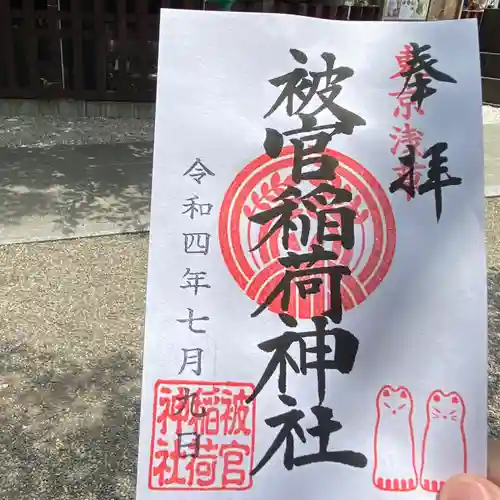 奉拝
東京浅草
被官稲荷神社
令和四年七月九日
被官稲荷神社